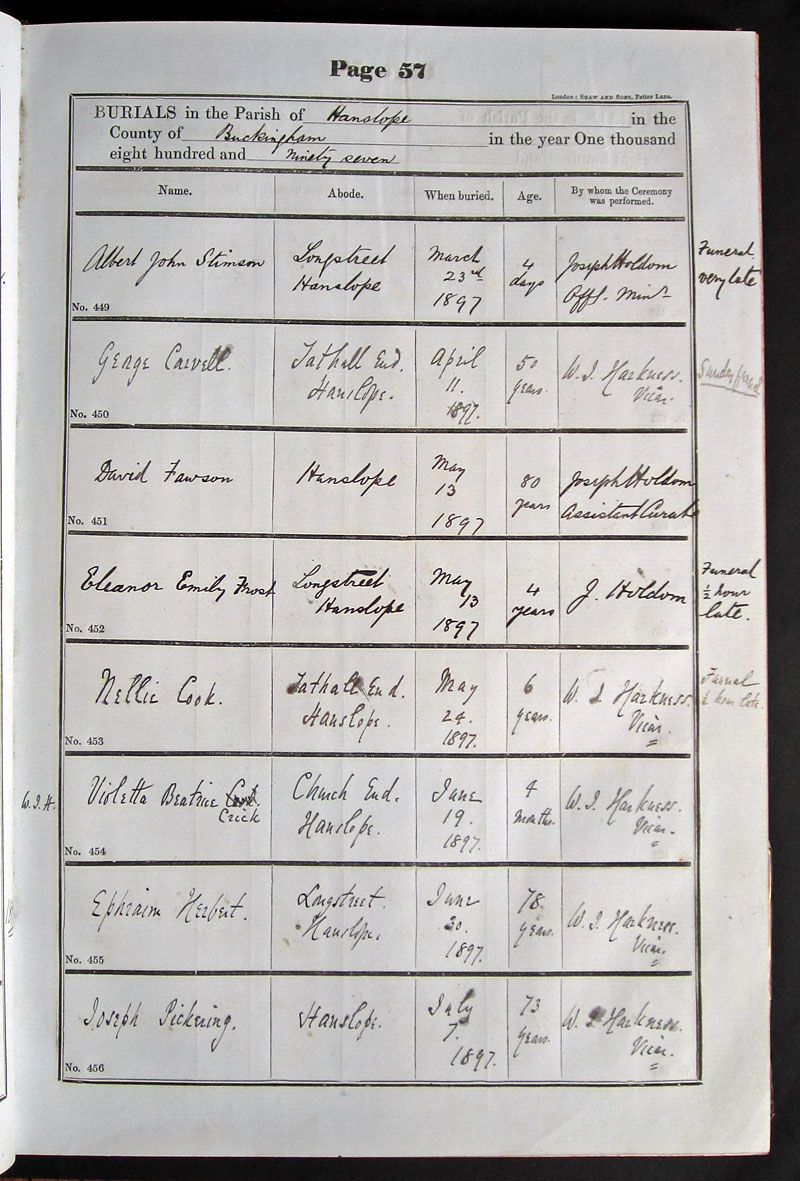 Page 57
London: SHAW AND SONS, Fetter Lane.
BURIALS in the Parish of Hanslope in the
County of Buckingham in the year One thousand
eight hundred and ninety seven
Name. Abode. When buried. Age. By whom the Ceremony was performed.
Albert John Stimson
Longstreet
Hanslope
March
23rd
1897
4
days
Joseph Holdom
Offg. Minr
Funeral
very late
No. 449
George Carvell.
Tathall End.
Hanslope.
April
11.
1897.
50
years.
W. J. Harkness.
Vicar.
Sunday funeral
No. 450
David Fawson
Hanslope
May
13
1897
80
years
Joseph Holdom
Assistant Curate
No. 451
Eleanor Emily Frost
Longstreet
Hanslope
May
13
1897
4
years
J. Holdom
Funeral
½ hour
late.
No. 452
Nellie Cook.
Tathall End.
Hanslope.
May
24.
1897.
6
years.
W. J. Harkness.
Vicar.
Funeral
½ hour late.
No. 453
W. J. H.
Violetta Beatrice
Crick
Church End.
Hanslope.
June
19.
1897.
4
months.
W. J. Harkness.
Vicar.
No. 454
Ephraim Herbert.
Longstreet.
Hanslope.
June
30.
1897.
78
years.
W. J. Harkness.
Vicar.
No. 455
Joseph Pickering.
Hanslope.
July
7.
1897.
73
years.
W. J. Harkness.
Vicar.
No. 456